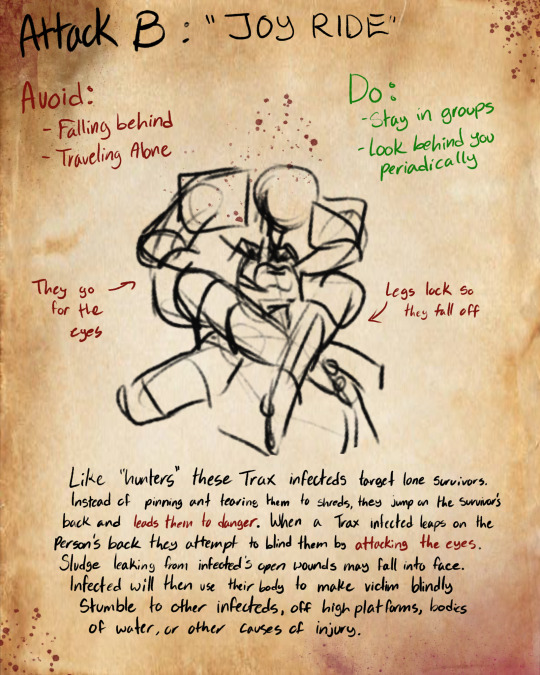 Attack B : "JOY RIDE"
Avoid:
- Falling behind
- Traveling Alone
Do:
- Stay in groups
- Look behind you
periadically
They go
for the
eyes
Legs lock so
they fall off
Like "hunters" these Trax infecteds target lone survivors.
Instead of pinning ant tearing them to shreds, they jump on the survivor's
back and leads them to danger. When a Trax infected leaps on the
person's back they attempt to blind them by attacking the eyes.
Sludge leaking from infected's open wounds may fall into face.
Infected will then use their body to make victim blindly
stumble to other infecteds, off high platforms, bodies
of water, or other causes of injury.